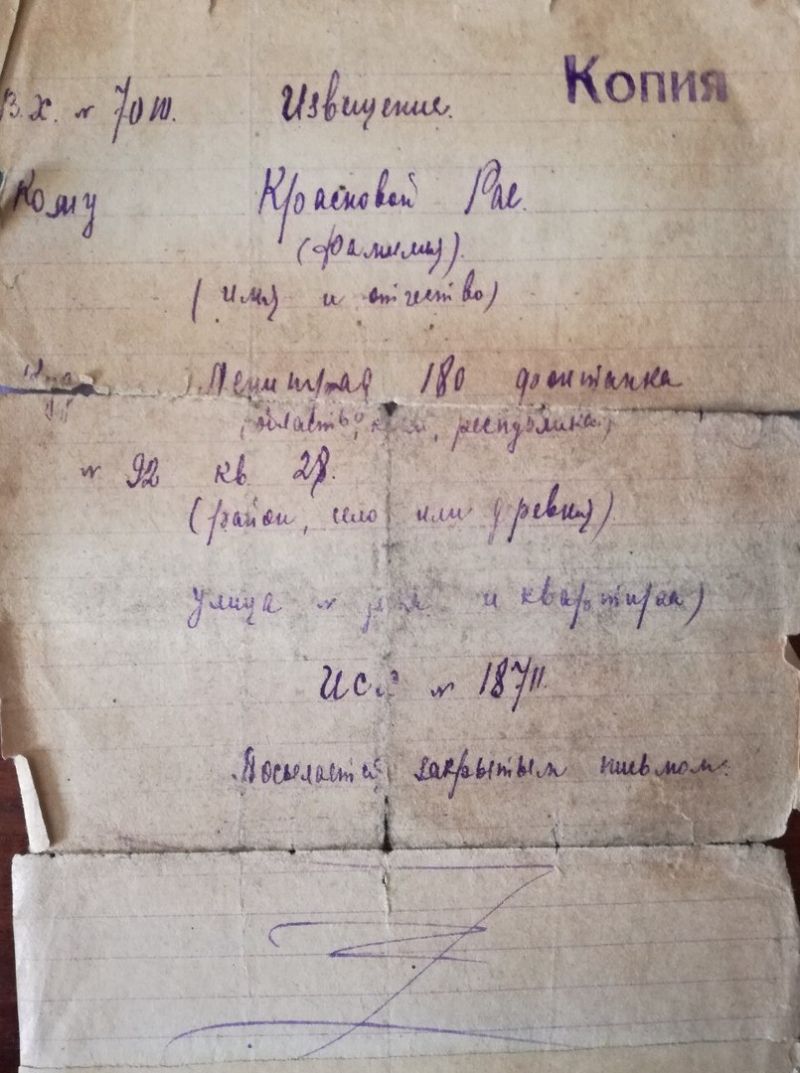 Копия
В.Х. № 7010. Извещение.
Кому Красновой Рае.
(фамилия).
(имя и отчество)
Ленинград 180 фонтанка
(область, край, республика)
№ 92 кв 28.
(район, село или деревня)
улица № дома и квартира)
Исх № 18711.
Посылается закрытым письмом.